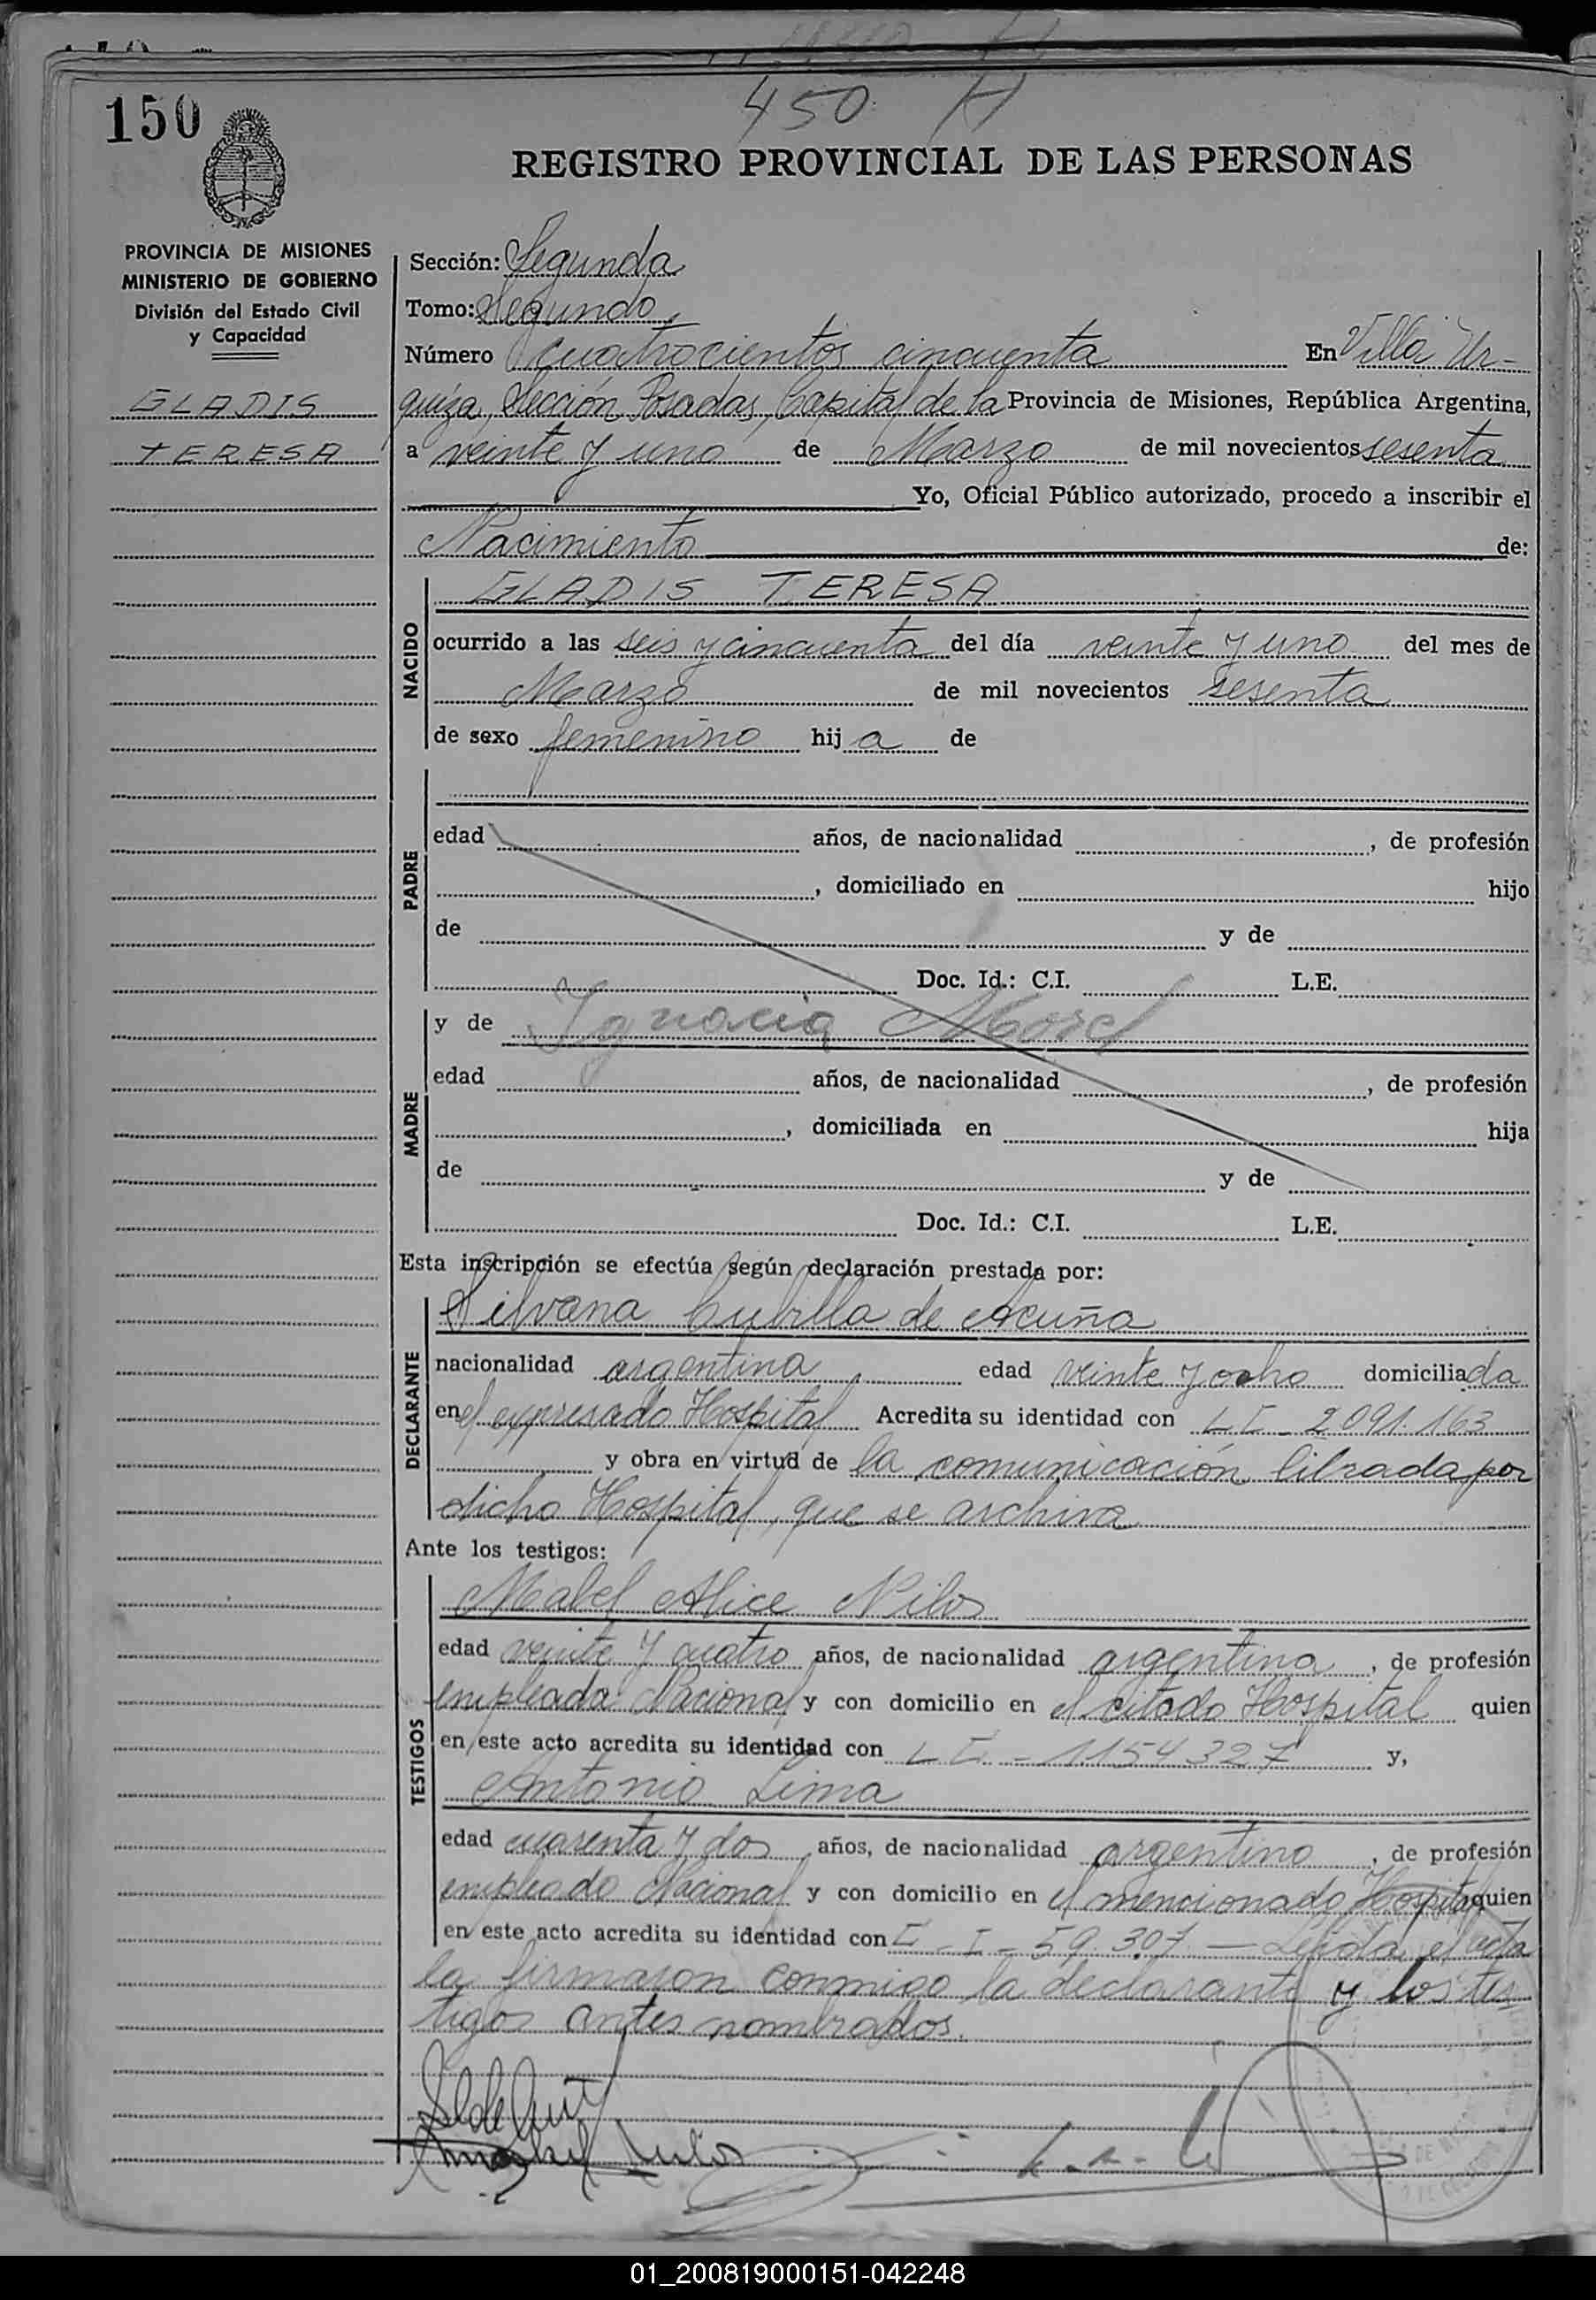 450
150
REGISTRO PROVINCIAL DE LAS PERSONAS
PROVINCIA DE MISIONES
MINISTERIO DE GOBIERNO
División del Estado Civil
y Capacidad
GLADIS
TERESA
Sección: Segunda
Tomo: Segundo
Número cuatrocientos cincuenta En Villa Ur-
quiza, Sección Posadas, Capital de la Provincia de Misiones, República Argentina,
a veinte y uno de Marzo de mil novecientos sesenta
Yo, Oficial Público autorizado, procedo a inscribir el
Nacimiento de:
NACIDO
GLADIS TERESA
ocurrido a las seis y cincuenta del día veinte y uno del mes de
Marzo de mil novecientos sesenta
de sexo femenino hija de
PADRE
edad años, de nacionalidad , de profesión
, domiciliado en hijo
de y de
Doc. Id.: C.I. L.E.
MADRE
y de Ignacia Morel
edad años, de nacionalidad , de profesión
, domiciliada en hija
de y de
Doc. Id.: C.I. L.E.
Esta inscripción se efectúa según declaración prestada por:
DECLARANTE
Silvana Cubilla de Acuña
nacionalidad argentina edad veinte y ocho domiciliada
en el expresado Hospital Acredita su identidad con LC - 2.091.163
y obra en virtud de la comunicación librada por
dicho Hospital, que se archiva
Ante los testigos:
TESTIGOS
Mabel Alice Nilos
edad veinte y cuatro años, de nacionalidad argentina, de profesión
empleada Nacional y con domicilio en el citado Hospital quien
en este acto acredita su identidad con LC - 1154327 y,
Antonio Lima
edad cuarenta y dos años, de nacionalidad argentino, de profesión
empleado Nacional y con domicilio en el mencionado Hospital quien
en este acto acredita su identidad con C - I - 59.307 — Leída el acta
la firmaron conmigo la declarante y los tes
tigos antes nombrados.
01_200819000151-042248